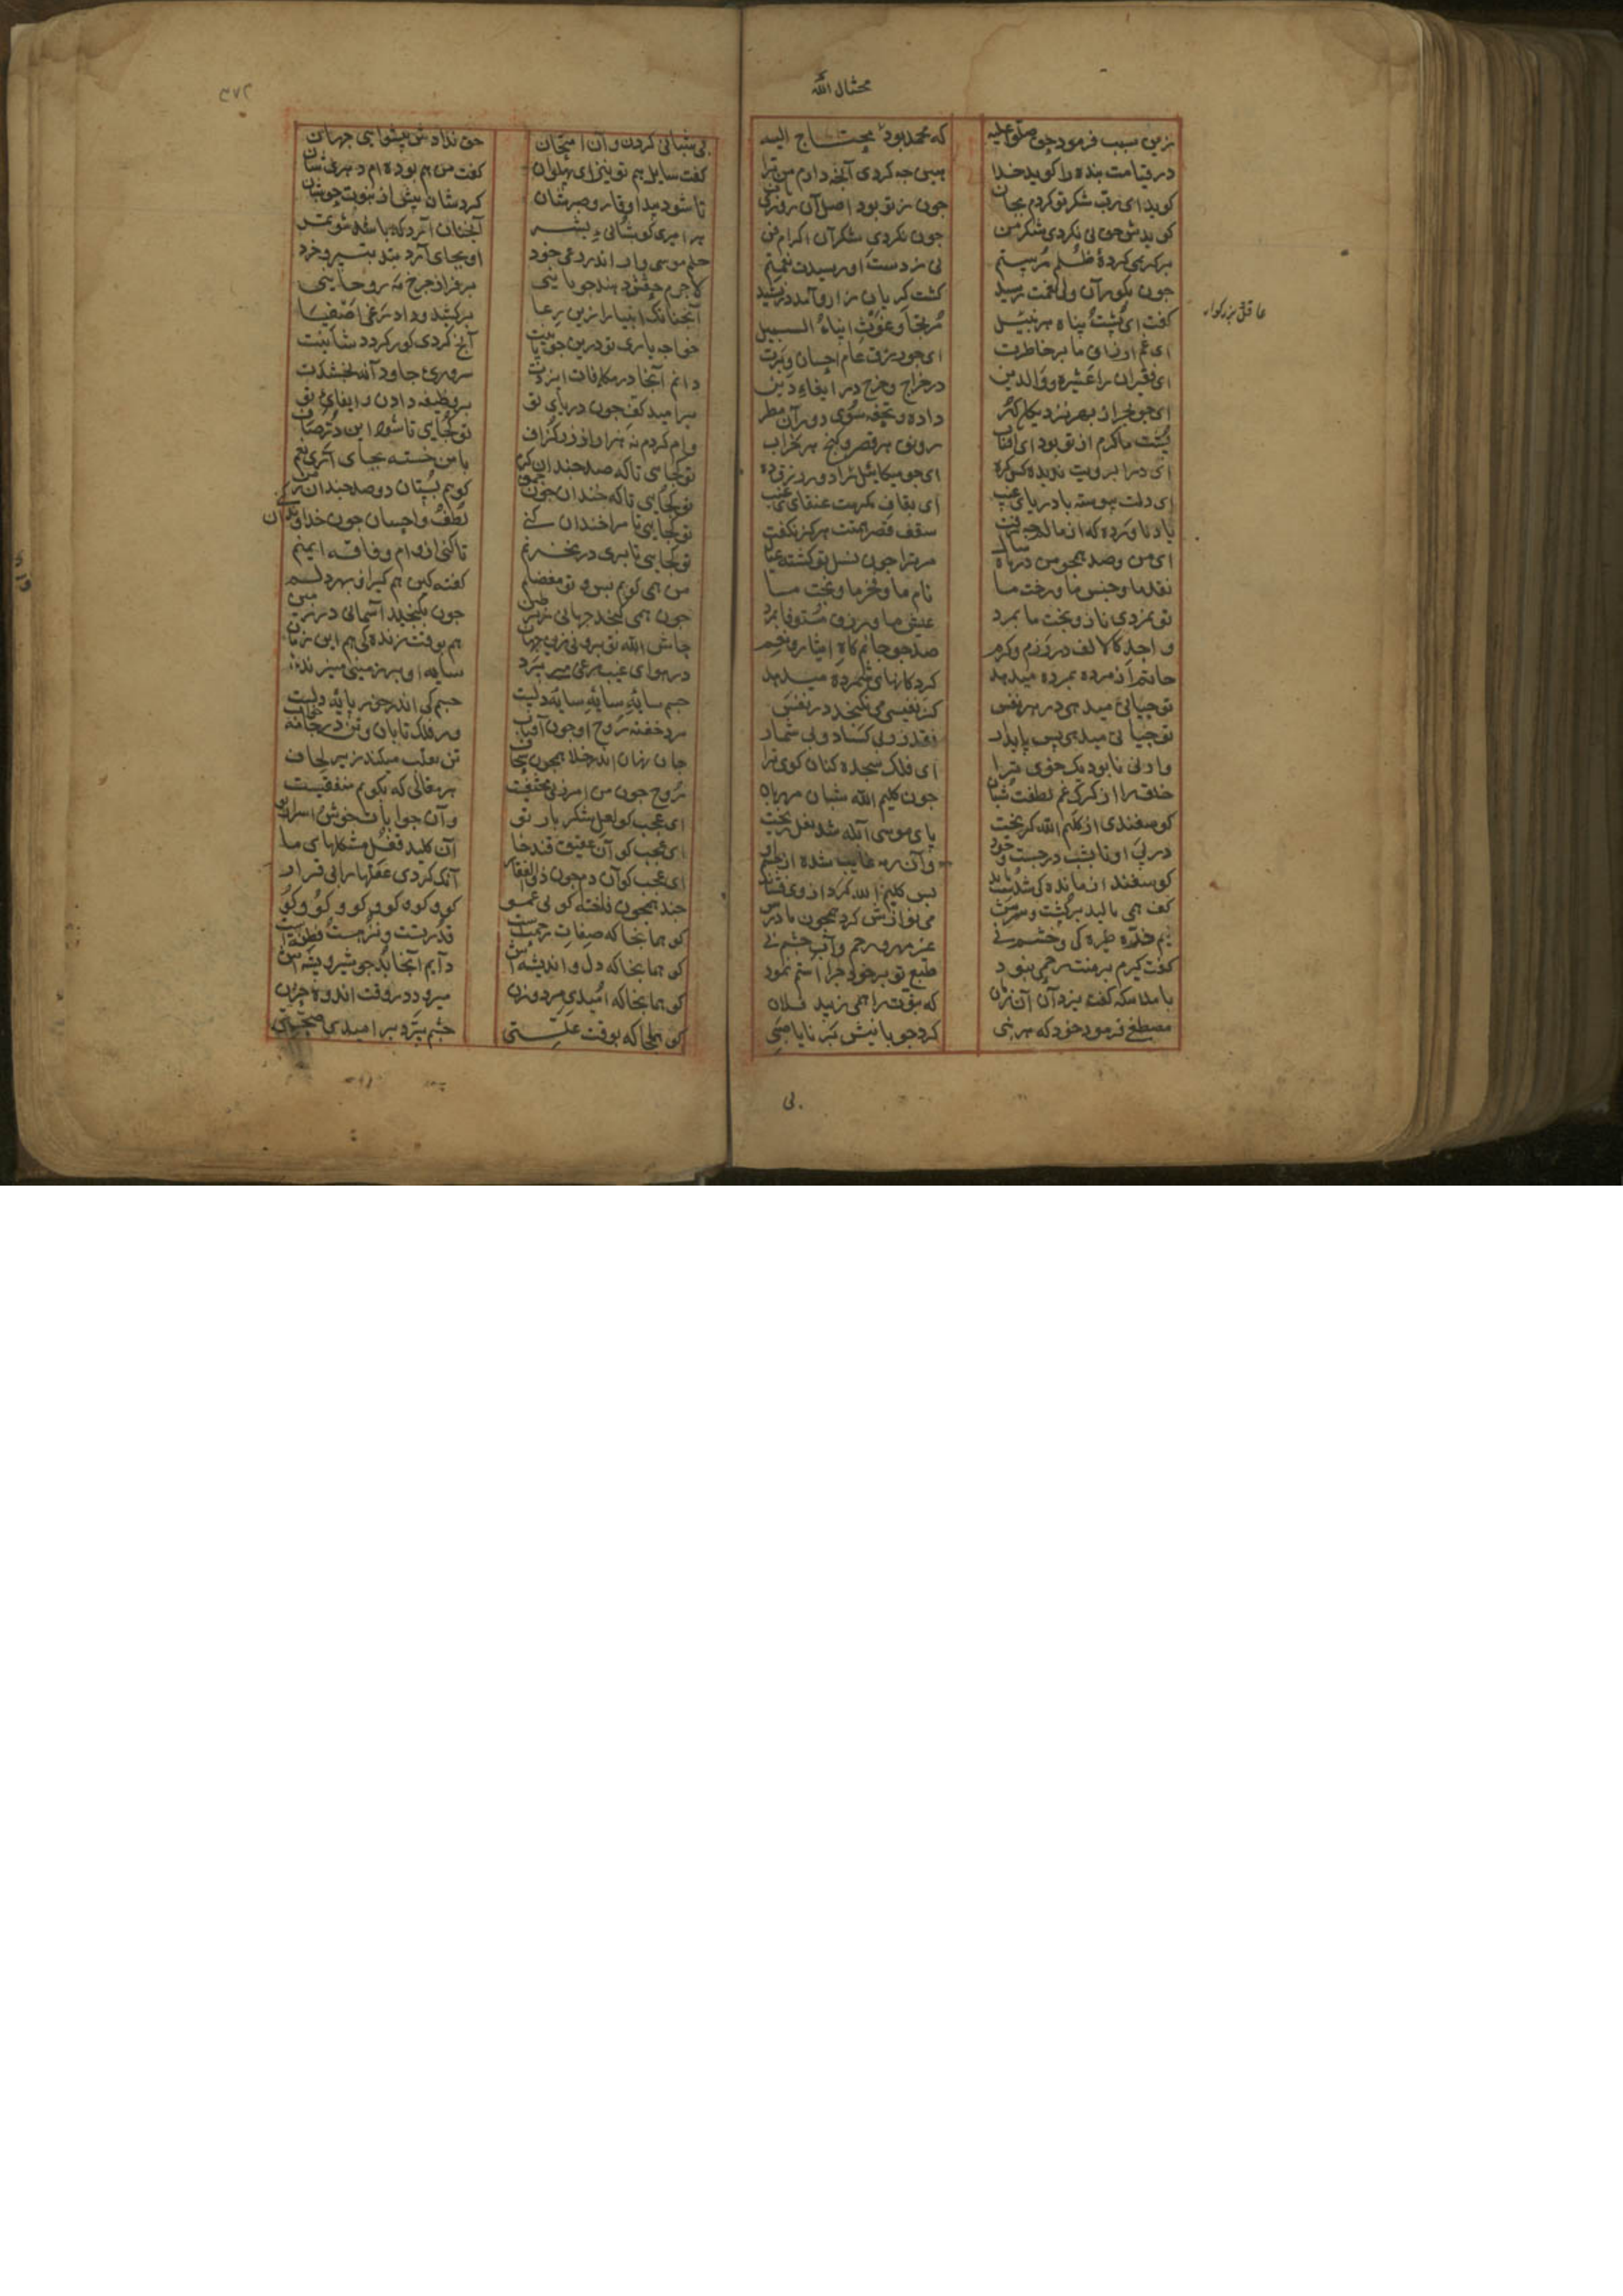 محتال الله
زین سبب فرمود حق صلوا علیه که محمد بود محتاج الیه
در قیامت بنده را کوید خدا هین چه کردی آنچه دادم من ترا
کوید ای رب شکر تو کردم بجان چون ز تو بود اصل آن روزی
کویدش حق نی نکردی شکر من چون نکردی شکر آن اکرام فن
بر کریمی کردهٔ ظلم و ستم نی ز دست او رسیدت نعمتم
چون بکور آن ولی نعمت رسید کشت کریان زار و آمد در نشید
کفت ای پشت و پناه هر نبیل مرتجا و غوث ابناء السبیل
ای غم ارزاق ما بر خاطرت ای چو رزق عام احسان و برت
ای فقیران را عشیره و والدین در خراج و خرج در ایفاء دین
ای چو بحر از بهر نزدیکان کهر داده و تحفه سوی دوران مطر
پشت ما کرم از تو بود ای آفتاب رونق هر قصر و کنج هر خراب
ای در ابرویت ندیده کس کره ای چو میکائیل راد و رزق ده
ای دلت پیوسته با دریای غیب ای بقاف مکرمت عنقای غیب
یاد ناورده که از مالم چه رفت سقف قصر همتت هرکز نکفت
ای من و صد همچو من در ماه و سال مر ترا چون نسل تو کشته عیال
نقد ما و جنس ما و رخت ما نام ما و فخر ما و بخت ما
تو نمردی ناز و بخت ما بمرد عیش ما و رزق مستوفا بمرد
واحد کالالف در رزم و کرم صد چو حاتم کاه ایثار و نعم
حاتم ار مرده بمرده میدهد کردکانهای شمرده میدهد
تو حیاتی میدهی در هر نفس کز نفیسی می نکنجد در نفس
تو حیاتی میدهی بس پایدار نقد زر بی کساد و بی شمار
وارثی نابوده یک خوی ترا ای فلک سجده کنان کوی ترا
خلق را از کرک غم لطفت شبان چون کلیم الله شبان مهربان
کوسفندی از کلیم الله کریخت پای موسی آبله شد نعل ریخت
در پی او تا بشب در جست و جو وآن رمه غایب شده از چشم او
کوسفند از ماندکی شد سست و ماند پس کلیم الله کرد از وی فشاند
کف همی مالید بر پشت و سرش می نوازش کرد همچون مادرش
نیم ذره طیره کی و خشم نی غیر مهر و رحم و آب چشم نی
کفت کیرم بر منت رحمی نبود طبع تو بر خود چرا استم نمود
با ملایک کفت یزدان آن زمان که نبوت را همی زیبد فلان
مصطفی فرمود خود که هر نبی کرد چوپانیش برنا یا صبی
عاقل بزرکوار
بی
بی شبانی کردن و آن امتحان حق ندادش پیشوایی جهان
کفت سایل هم تو نیز ای پهلوان کفت من هم بوده‌ام دهری شبان
تا شود پیدا وقار و صبرشان کردشان پیش از نبوت حق شبان
هر امیری کو شبانی بشر آنچنان آرد که باشد مؤتمر
حلم موسی وار اندر رعی خود او بجای آرد بتدبیر و خرد
لاجرم حقش دهد چوپانیی بر فراز چرخ مه روحانیی
آنچنانک انبیا را زین رعا برکشید و داد رعی اصفیا
خواجه باری تو درین چوپانیت آنچ کردی کور کردد شانیت
دانم آنجا در مکافات ایزدت سروری جاودانه بخشدت
بر امید کف چون دریای تو بر وظیفه دادن و ایفای تو
وام کردم نه هزار از زر کزاف تو کجایی تا شود این درد صاف
تو کجایی تا که صد چندان کرم با من خسته بجای آری بنعم
تو کجایی تا که خندان چون چمن کوییم بستان دو صد چندان ز من
تو کجایی تا مرا خندان کنی لطف و احسان چون خداوندان کنی
تو کجایی تا بری در مخزنم تا کنی از وام و فاقه ایمنم
من همی کویم بس و تو مفضلم کفته کین هم کیر از بهر دلم
چون همی کنجد جهانی زیر طین چون بکنجد آسمانی در زمین
حاش الله تو برونی زین جهان هم بوقت زندکی هم این زمان
در هوای غیب مرغی میپرد سایه او بر زمینی میزند
جسم سایهٔ سایهٔ سایهٔ دلست جسم کی اندر خور پایهٔ دلست
مرد خفته روح او چون آفتاب در فلک تابان و تن در جامه خواب
جان نهان اندر خلا همچون سجاف تن تقلب میکند زیر لحاف
روح چون من امر ربی مختفیست هر مثالی که بکویم منتفیست
ای عجب کو لعل شکر بار تو وآن جوابات خوش و اسرار تو
ای عجب کو آن عقیق قند خا آن کلید قفل مشکلهای ما
ای عجب کو آن دم چون ذوالفقار آنک کردی عقلها را بی قرار
چند همچون فاخته کو بی عمو کو و کو و کو و کو و کو و کو
کو همانجا که صفات رحمتست قدرتست و نزهتست و فطنتست
کو همانجا که دل و اندیشه‌اش دایم آنجا بد چو شیر و بیشه‌اش
کو همانجا که امید مرد و زن میرود در وقت اندوه و حزن
کو همانجا که بوقت علتی چشم پرد بر امید صحتی